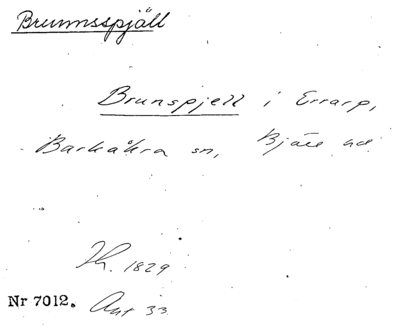 Brunnsspjäll
Brunspjell i Errarp,
Barkåkra sn, Bjäre hd
Th. 1829
Nr 7012. Ant 33